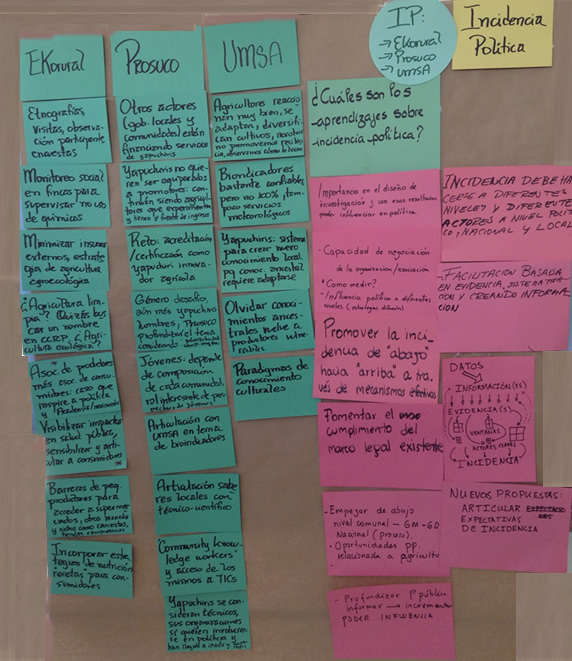 EKorural
Etnografías,
visitas, observa-
ción participante
encuestas
Monitoreo social
en fincas para
supervisar no uso
de químicos
Minimizar insumos
externos, estrate-
gia de agricultura
agroecológica
¿Agricultura lim-
pia? Quizás bus-
car un nombre
en CCRP. ¿Agri-
cultura ecológica?
Asoc. de productores
más asoc. de consu-
midores: creo que
inspire a política
y
Visibilizar impactos
en salud pública,
sensibilizar y arti-
cular a consumidores
Barreras de peq.
productores para
acceder a superme-
cados, otros
Incorporar estra-
tegias de "nutrición,
recetas" para con-
sumidores
Prosuco
Otros actores
(gob. locales y
comunidades) están
financiando servicios
de yapuchiris
Yapuchiris no quie-
ren ser equiparados
a promotores: con-
tinúan siendo agricul-
tores que experimenta
y tema y frente de ingreso
Reto: acreditación/
certificación como
yapuchiri innova-
dor agrícola
Género desafío,
aún más yapuchiris
hombres, Prosuco
profundizar el tema
Jóvenes: depende
de composición
de cada comunidad,
rol interesante de
Articulación con
UMSA en tema
de bioindicadores
Articulación sabe-
res locales con
técnico-científico
"Community know-
ledge workers"
y acceso de los
mismos a TICs
Yapuchiris se con-
sideran técnicos,
sus organizaciones
sí quieren involucrar-
se en políticas y
han llegado a
UMSA
Agricultores reaccio-
nan muy bien, se
adaptan, diversifi-
can cultivos, nosotros
no promovemos
observamos cómo lo hacen
Bioindicadores
bastante confiables,
pero no 100%, tam-
poco servicios
meteorológicos
Yapuchiris: sistema
para crear nuevo
conocimiento local
pq conoc. ancestral
requiere adaptarse
Olvidar conoci-
mientos ances-
trales vuelve a
productores vulne-
rables
Paradigmas de
conocimiento
culturales
IP:
→ Ekorural
→ Prosuco
→ UMSA
Incidencia
Política
¿Cuáles son los
aprendizajes sobre
incidencia política?
Importancia en el diseño de
investigación y con esos resultados
poder influenciar en política.
- Capacidad de negociación
de la organización/asociación
- Como medir?
- Influencia política a diferentes
niveles (estrategias diferentes)
Promover la inci-
dencia de "abajo"
hacia "arriba" a tra-
vés de mecanismos efectivos
Fomentar el
cumplimiento del
marco legal existente
- Empezar de abajo
nivel comunal - GM - GD
Nacional (proceso).
- Oportunidades pp.
relacionada a agricultu
- Profundizar P públic
informar → incrementar
PODER INFLUENCIA
INCIDENCIA DEBE HA-
CERSE A DIFERENTES
NIVELES Y DIFERENTE
ACTORES A NIVEL POLÍT
CO, NACIONAL Y LOCAL
- FACILITACIÓN BASADA
EN EVIDENCIA, SISTEMATIZA-
CIÓN Y CREANDO INFORMA-
CIÓN
DATOS
INFORMACIÓN(ES)
EVIDENCIA(S)
VENTANAS
ACTORES CLAVES
INCIDENCIA
NUEVOS PROPUESTAS:
ARTICULAR
EXPECTATIVAS
DE INCIDENCIA